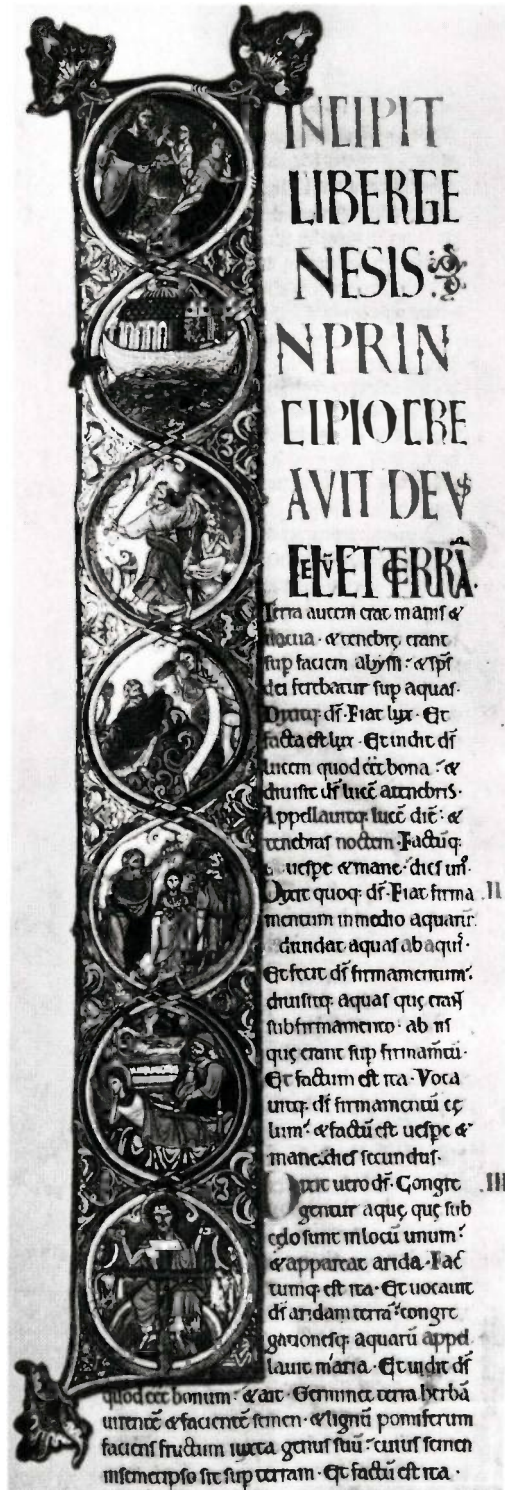 INCIPIT
LIBER GE
NESIS
N PRIN
CIPIO CRE
AVIT DEVS
CELV ET TERRĀ.
Terra autem erat inanis &
uacua · & tenebrę erant
sup faciem abyssi · & sps
dei ferebatur sup aquas ·
Dixitq; ds · Fiat lux · Et
facta est lux · Et uidit ds
lucem quod eet bona · &
diuisit ds lucē a tenebris ·
Appellauitq; lucē diē · &
tenebras noctem · Factūq;
ē uespe & mane · dies un'.
Dixit quoq; ds · Fiat firma II
mentum in medio aquarū
diuidat aquas ab aquis ·
Et fecit ds firmamentum ·
diuisitq; aquas quę erant
sub firmamento · ab iis
quę erant sup firmamtū ·
Et factum est ita · Voca
uitq; ds firmamentū cę
lum · & factū est uespe &
mane · dies secundus ·
Dixit uero ds · Congre III
gentur aquę quę sub
cęlo sunt in locū unum ·
& appareat arida · Fac
tumq; est ita · Et uocauit
ds aridam terrā · congre
gationesq; aquarū appel
lauit maria · Et uidit ds
quod eet bonum · & ait · Germinet terra herbā
uirentē & facientē semen · & lignū pomiferum
faciens fructum iuxta genus suū · cuius semen
in semetipso sit sup terram · Et factū est ita ·